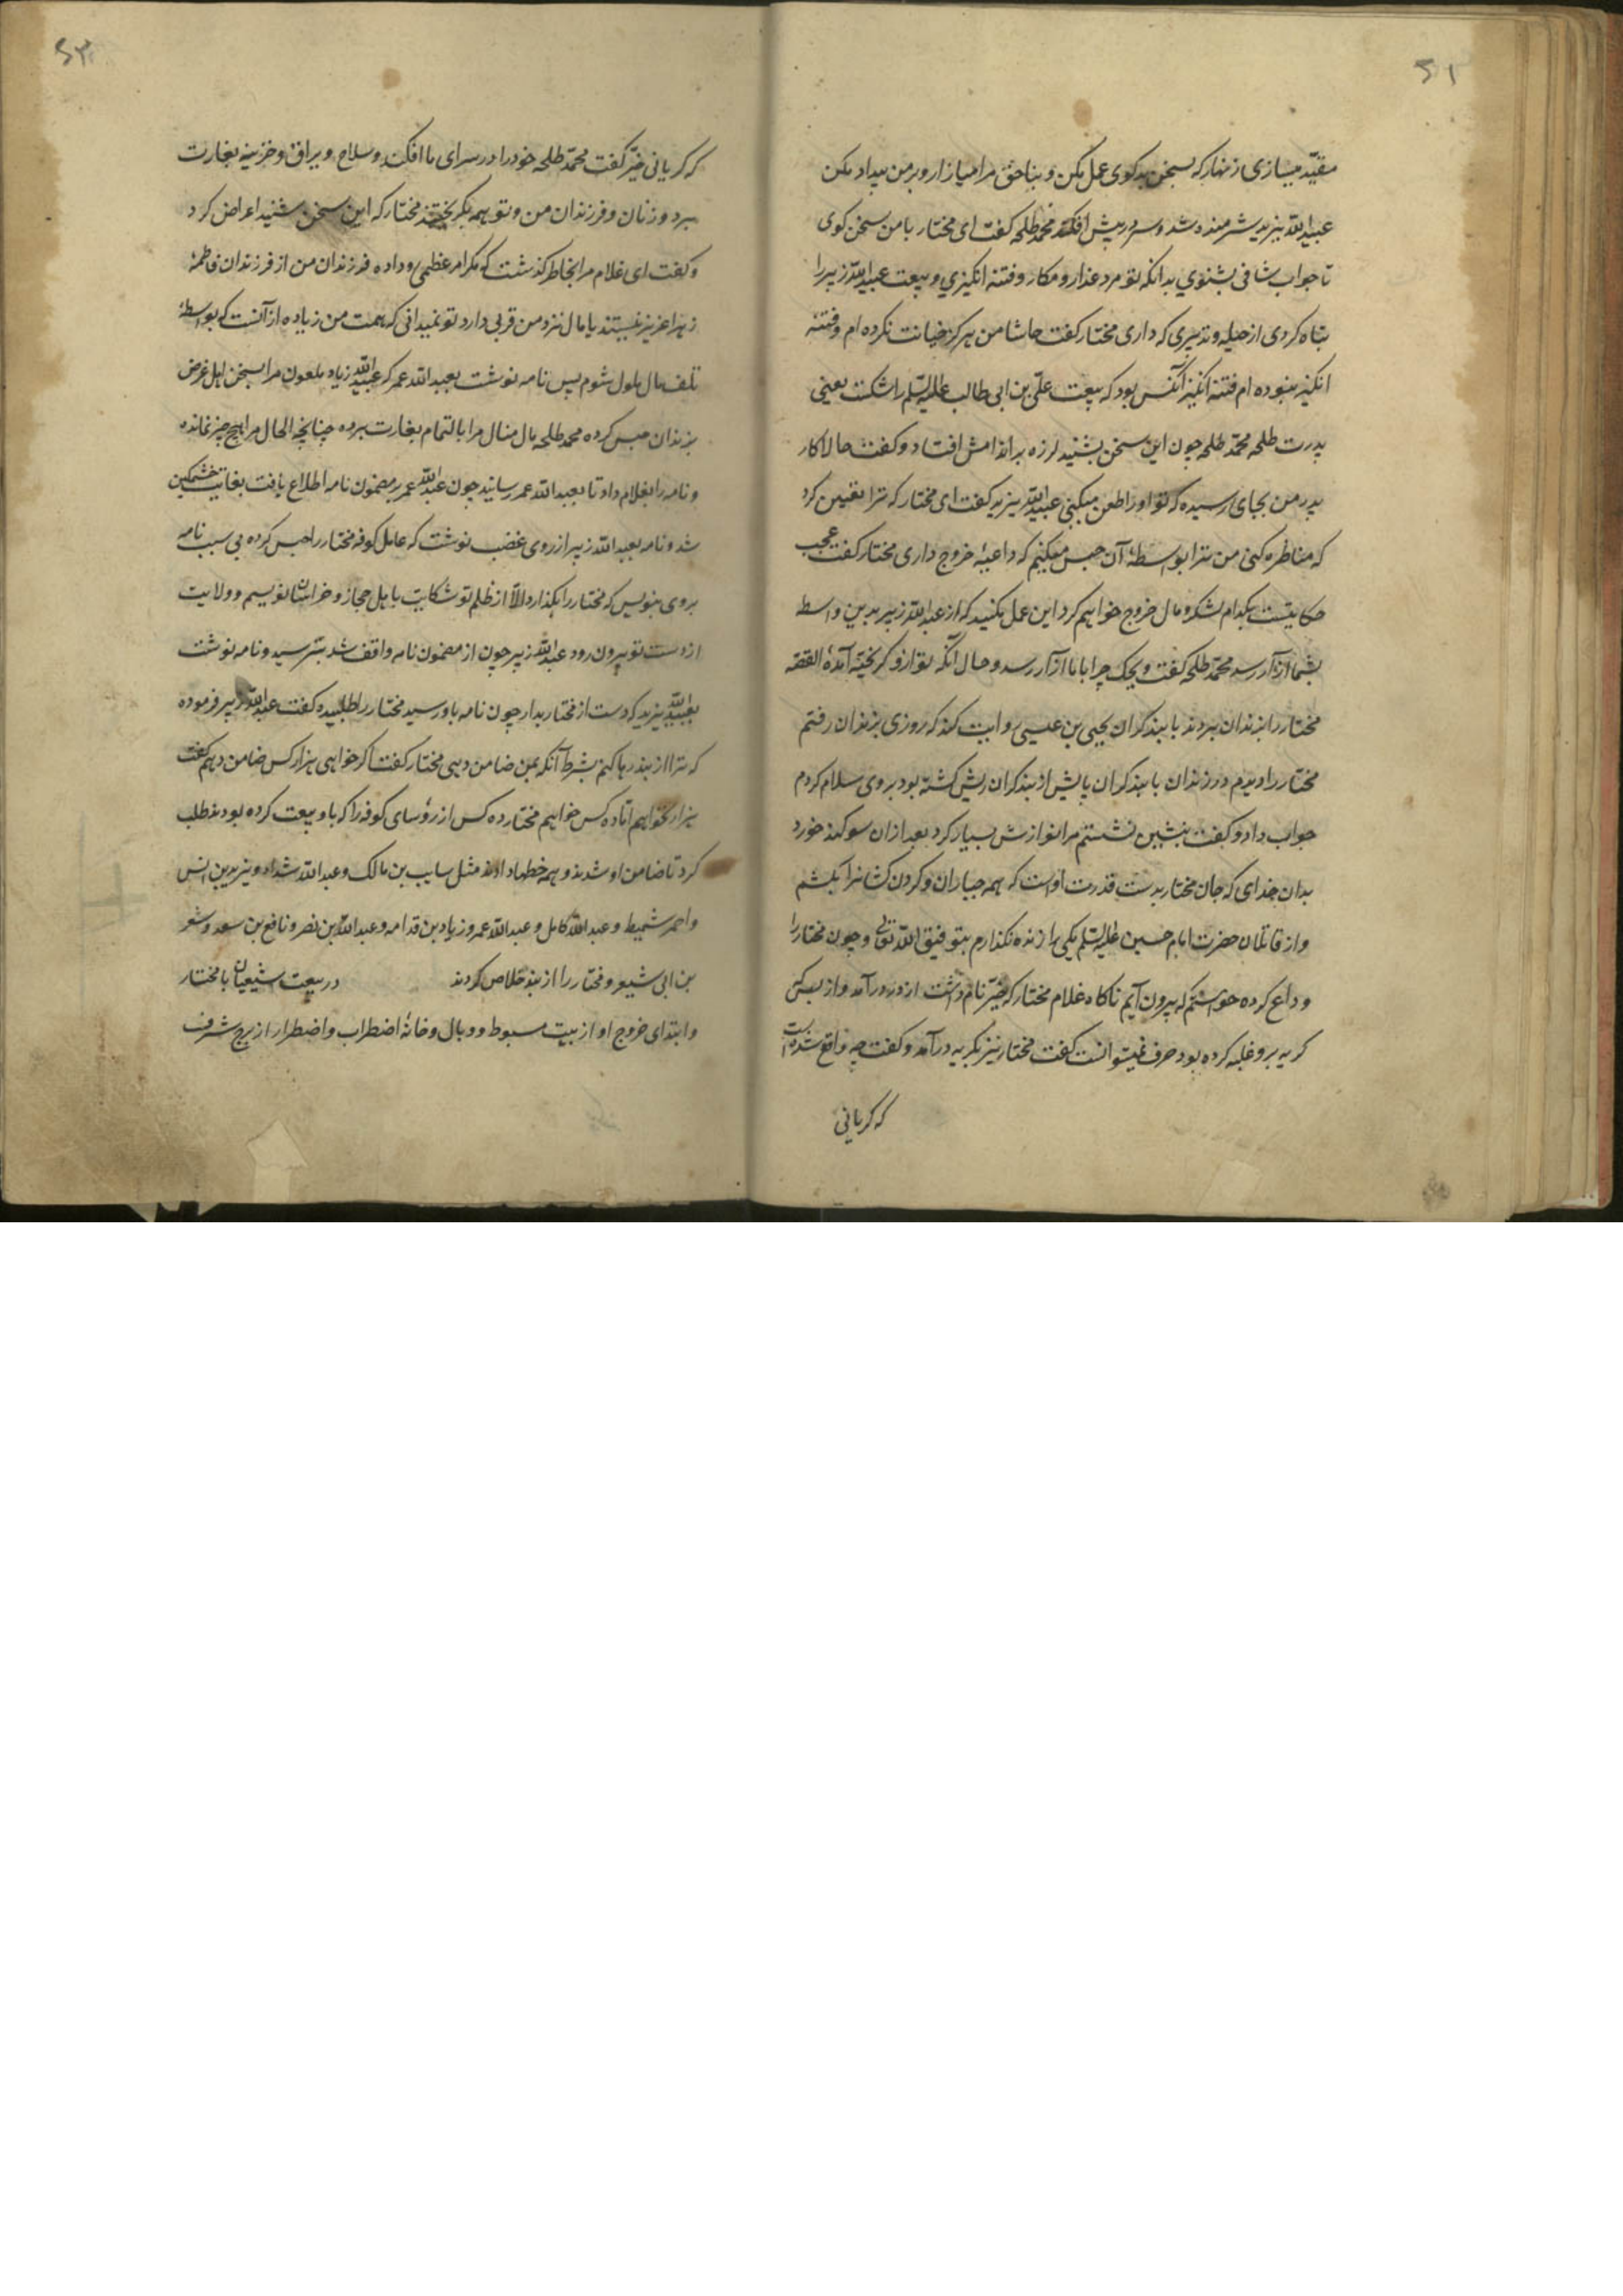 ۵۲
مقیّد میسازی زنهار که بسخن بدکوی عمل مکن و بناحق مرا میازار و بر من بیداد مکن
عبیدالله یزید شرمنده شد و سر در پیش افکند محمد طلحه کفت ای مختار با من سخن کوی
تا جواب شافی بشنوی بدانکه تو مرد غدار و مکار و فتنه انکیزی و بیعت عبیدالله زبیر را
تباه کردی از حیله و تدبیری که داری مختار کفت حاشا من هرکز خیانت نکرده ام و فتنه
انکیز نبوده ام فتنه انکیز آنکس بود که بیعت علی بن ابی طالب علیه السّلم را شکست یعنی
پدرت طلحه محمّد طلحه چون این سخن بشنید لرزه بر اندامش افتاد و کفت حالا کار
پدر من بجای رسیده که تو او را طعن میکنی عبیدالله یزید کفت ای مختار که ترا تعیین کرد
که مناظره کنی من ترا بواسطهٔ آن حبس میکنم که داعیهٔ خروج داری مختار کفت عجب
حکایتست بکدام لشکر و مال خروج خواهم کرد این عمل مکنید که از عبدالله زبیر بدین واسط
بشما آزار رسد محمّد طلحه کفت ویحک چرا با ما آزار رسد و حال آنکه تو ازو کریخته آمدهٔ القصه
مختار را بزندان بردند با بند کران یحیی بن عیسی روایت کند که روزی بزندان رفتم
مختار را دیدم در زندان با بند کران پایش از بند کران ریش کشته بود بر وی سلام کردم
جواب داد و کفت بنشین نشستم مرا نوازش بسیار کرد بعد از آن سوکند خورد
بدان خدای که جان مختار بدست قدرت اوست که همه جباران و کردن کشانرا بکشم
و از قاتلان حضرت امام حسین علیه السّلم یکی را زنده نکذارم بتوفیق الله تعالی و چون مختار را
وداع کرده خواستم که بیرون آیم ناکاه غلام مختار که خیّر نام داشت از در درآمد و از بس که
کریه برو غلبه کرده بود حرف نمیتوانست کفت مختار نیز بکریه درآمد و کفت چه واقع شده است
که کریانی
۵۳
که کریانی خیّر کفت محمّد طلحه خود را در سرای ما افکند و سلاح و یراق و خزینه بغارت
ببرد و زنان و فرزندان من و تو همه بکریختند مختار که این سخن شنید اعراض کرد
و کفت ای غلام مرا بخاطر کذشت که مکر امر عظمی رو داده فرزندان من از فرزندان فاطمهٔ
زهرا عزیز نیستند یا مال نزد من قربی دارد تو نمیدانی که همت من زیاده از آنست که بواسطهٔ
تلف مال ملول شوم پس نامه نوشت بعبدالله عمر که عبیدالله زیاد ملعون مرا بسخن اهل غرض
بزندان حبس کرده محمد طلحه مال منال مرا بالتمام بغارت برده چنانچه الحال مرا هیچ چیز نمانده
و نامه را بغلام داد تا بعبدالله عمر رسانید چون عبدالله عمر بر مضمون نامه اطلاع یافت بغایت خشمکین
شد و نامه بعبدالله زبیر از روی غضب نوشت که عامل کوفه مختار را حبس کرده بی سبب نامه
بروی بنویس که مختار را بکذارد والّا از ظلم تو شکایت باهل حجاز و خراسان نویسم و ولایت
از دست تو بیرون رود عبدالله زبیر چون از مضمون نامه واقف شد بترسید و نامه نوشت
بعبدالله یزید که دست از مختار بدار چون نامه باو رسید مختار را طلبیده کفت عبدالله زبیر فرموده
که ترا از بند رها کنم بشرط آنکه بمن ضامن دهی مختار کفت اکر خواهی هزار کس ضامن دهم کفت
هزار نخواهم اما ده کس خواهم مختار ده کس از رؤسای کوفه را که باو بیعت کرده بودند طلب
کرد تا ضامن او شدند و همه خطها دادند مثل سایب بن مالک و عبدالله شداد و یزید بن انس
و احمر شمیط و عبدالله کامل و عبدالله عمرو زیاد بن قدامه و عبدالله بن نصر و نافع بن سعد و شعر
بن ابی شیعر و مختار را از بند خلاص کردند در بیعت شیعیان با مختار
و ابتدای خروج او از بیت مسبوط و وبال و خانهٔ اضطراب و اضطرار از برج شرف